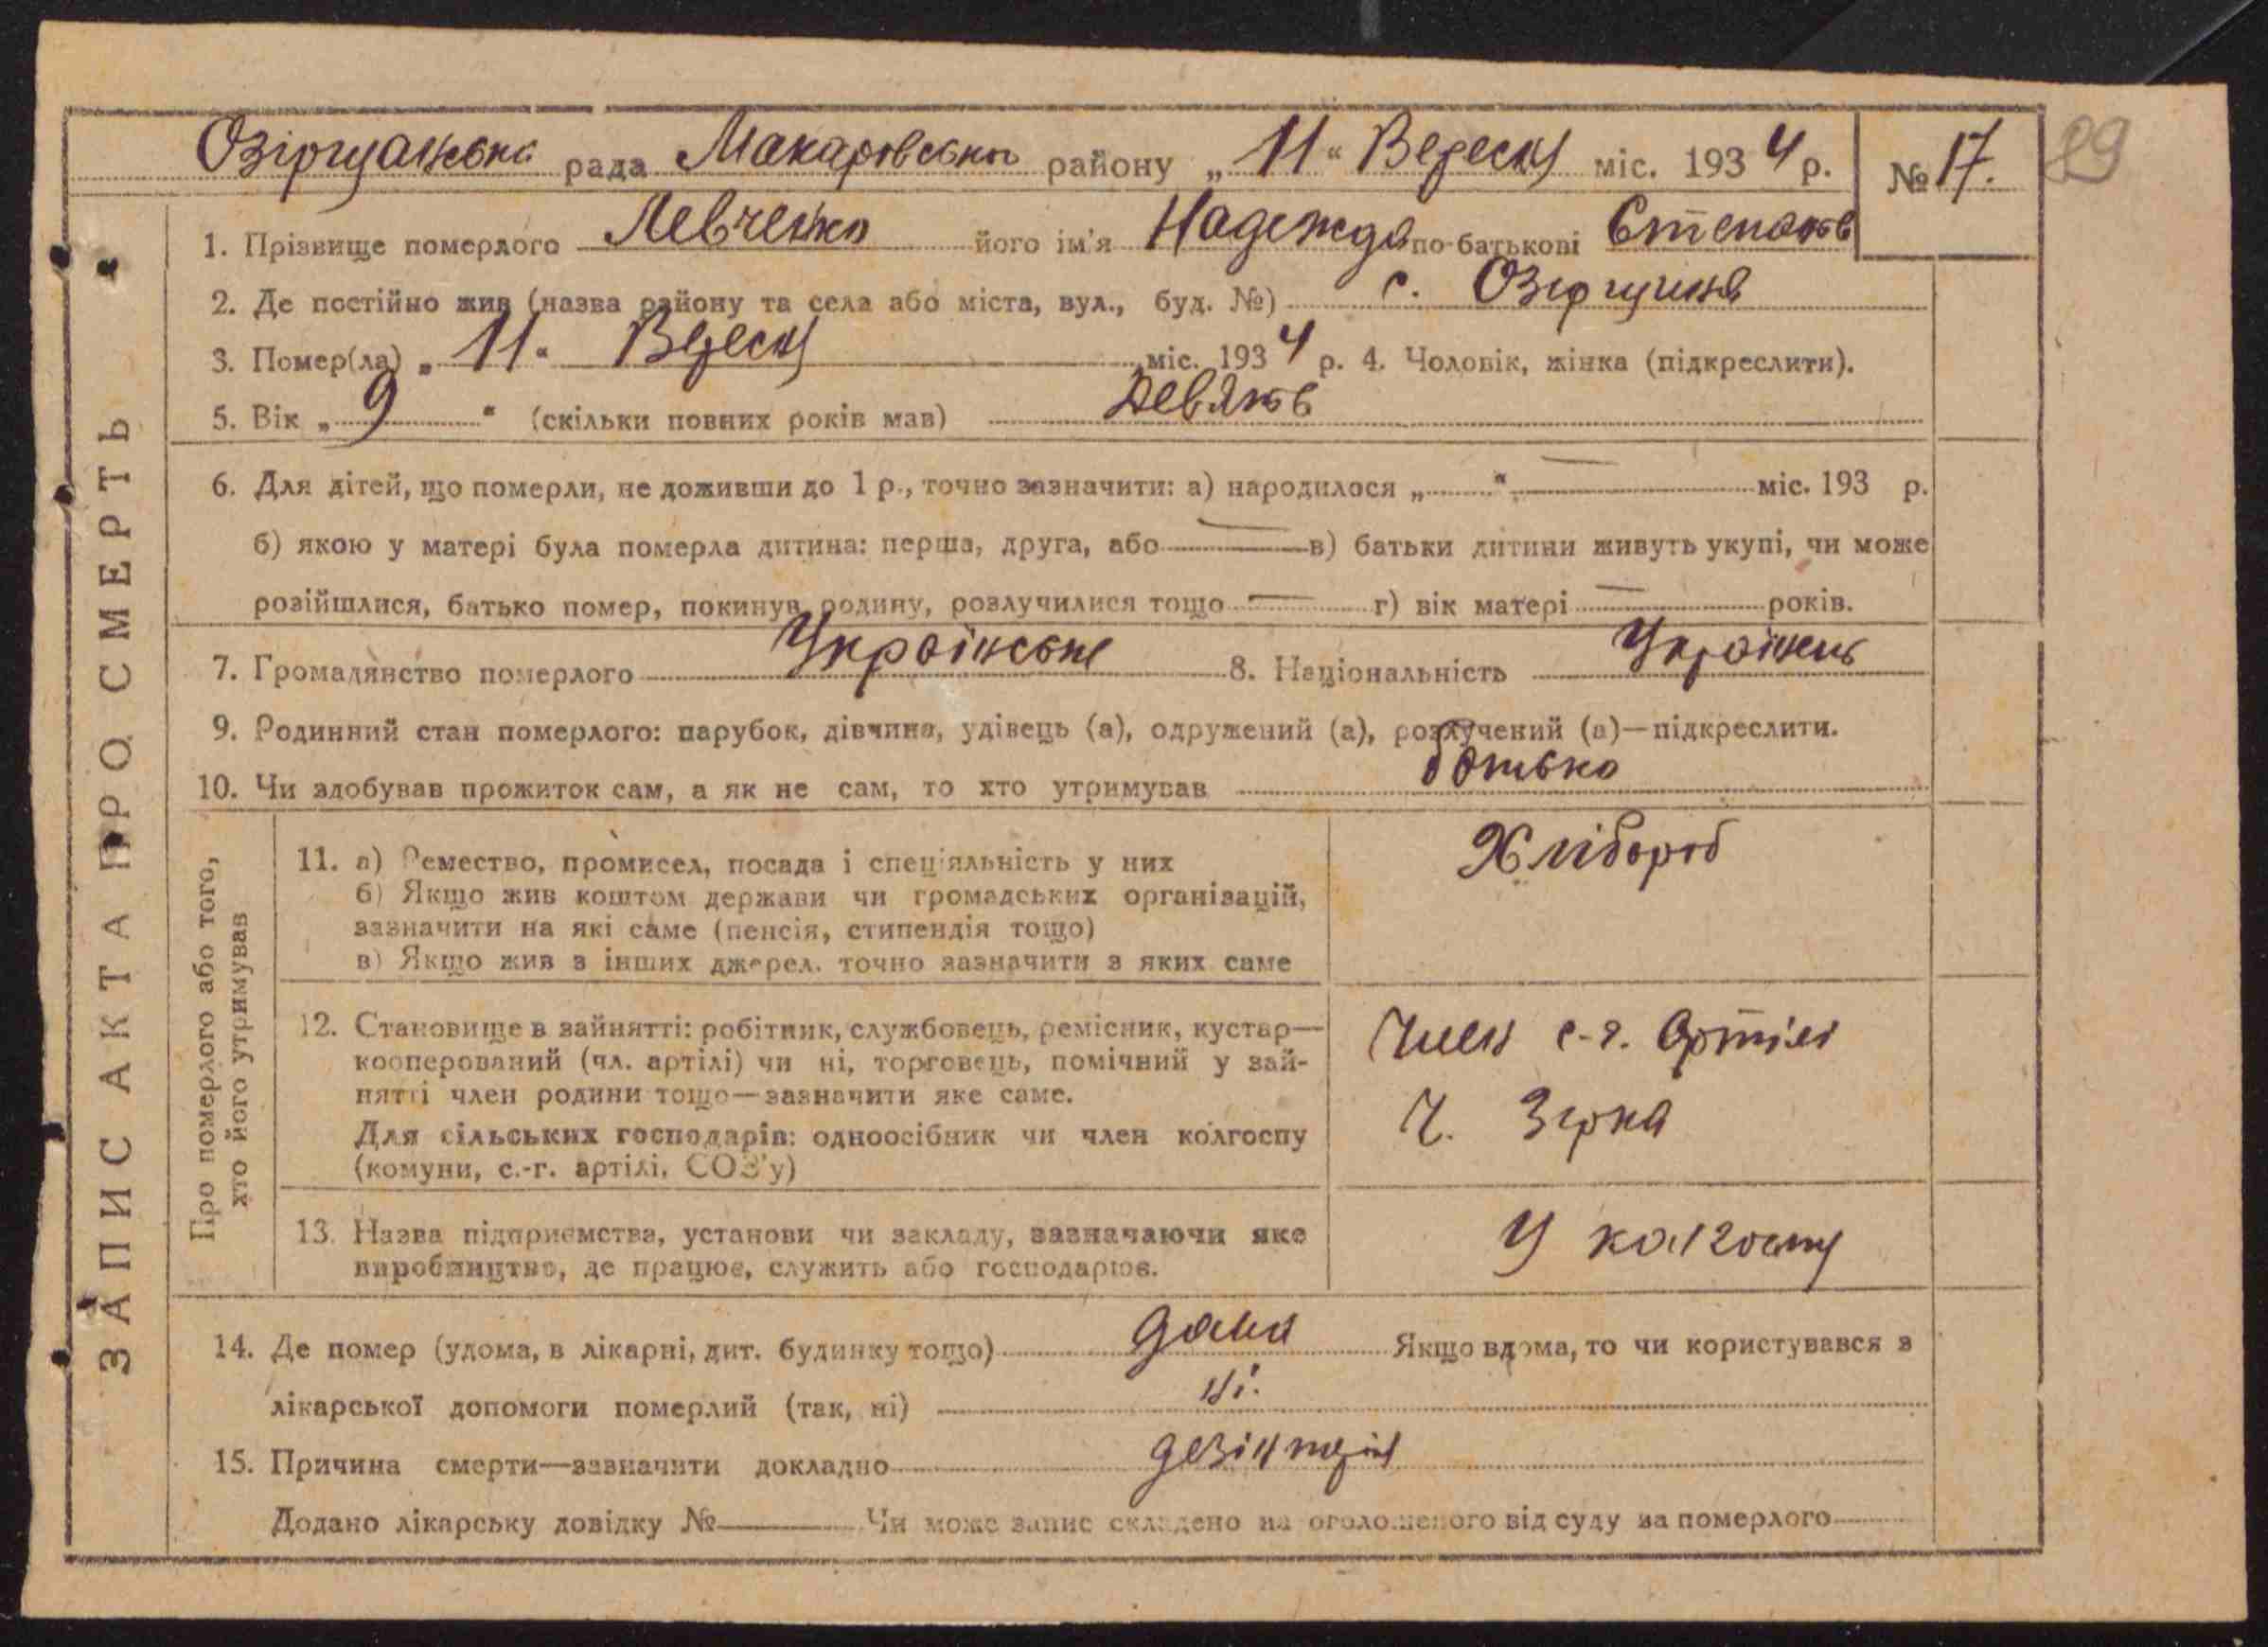 Озірщанська рада Макаровського району „11“ Вересня міс. 1934 р. № 17. 29
1. Прізвище померлого Левченко його ім'я Надежда по-батькові Степанов
2. Де постійно жив (назва району та села або міста, вул., буд. №) с. Озірщина
3. Помер(ла) „11“ Вересня міс. 1934 р. 4. Чоловік, жінка (підкреслити).
5. Вік „9“ (скільки повних років мав) Девять
6. Для дітей, що померли, не доживши до 1 р., точно зазначити: а) народилося „ “ — міс. 193 р.
б) якою у матері була померла дитина: перша, друга, або — в) батьки дитини живуть укупі, чи може
розійшлися, батько помер, покинув родину, розлучилися тощо — г) вік матері — років.
7. Громадянство померлого Українське 8. Національність Українець
9. Родинний стан померлого: парубок, дівчина, удівець (а), одружений (а), розлучений (а)—підкреслити.
10. Чи здобував прожиток сам, а як не сам, то хто утримував батько
ЗАПИС АКТА ПРО СМЕРТЬ
Про померлого або того,
хто його утримував
11. а) Ремество, промисел, посада і спец'яльність у них Хлібороб
б) Якщо жив коштом держави чи громадських організацій,
зазначити на які саме (пенсія, стипендія тощо)
в) Якщо жив з інших джерел. точно зазначити з яких саме
12. Становище в зайнятті: робітник, службовець, ремісник, кустар— Член с-г. Артілі
кооперований (чл. артілі) чи ні, торговець, помічний у зай-
нятті член родини тощо—зазначити яке саме. Ч. Зірка
Для сільських господарів: одноосібник чи член колгоспу
(комуни, с.-г. артілі, СОЗ'у)
13. Назва підприємства, установи чи закладу, зазначаючи яке У колгоспу
виробництво, де працює, служить або господарює.
14. Де помер (удома, в лікарні, дит. будинку тощо) дома Якщо вдома, то чи користувався з
лікарської допомоги померлий (так, ні) ні.
15. Причина смерти—зазначити докладно дезінтерія
Додано лікарську довідку № Чи може запис складено на оголошеного від суду за померлого